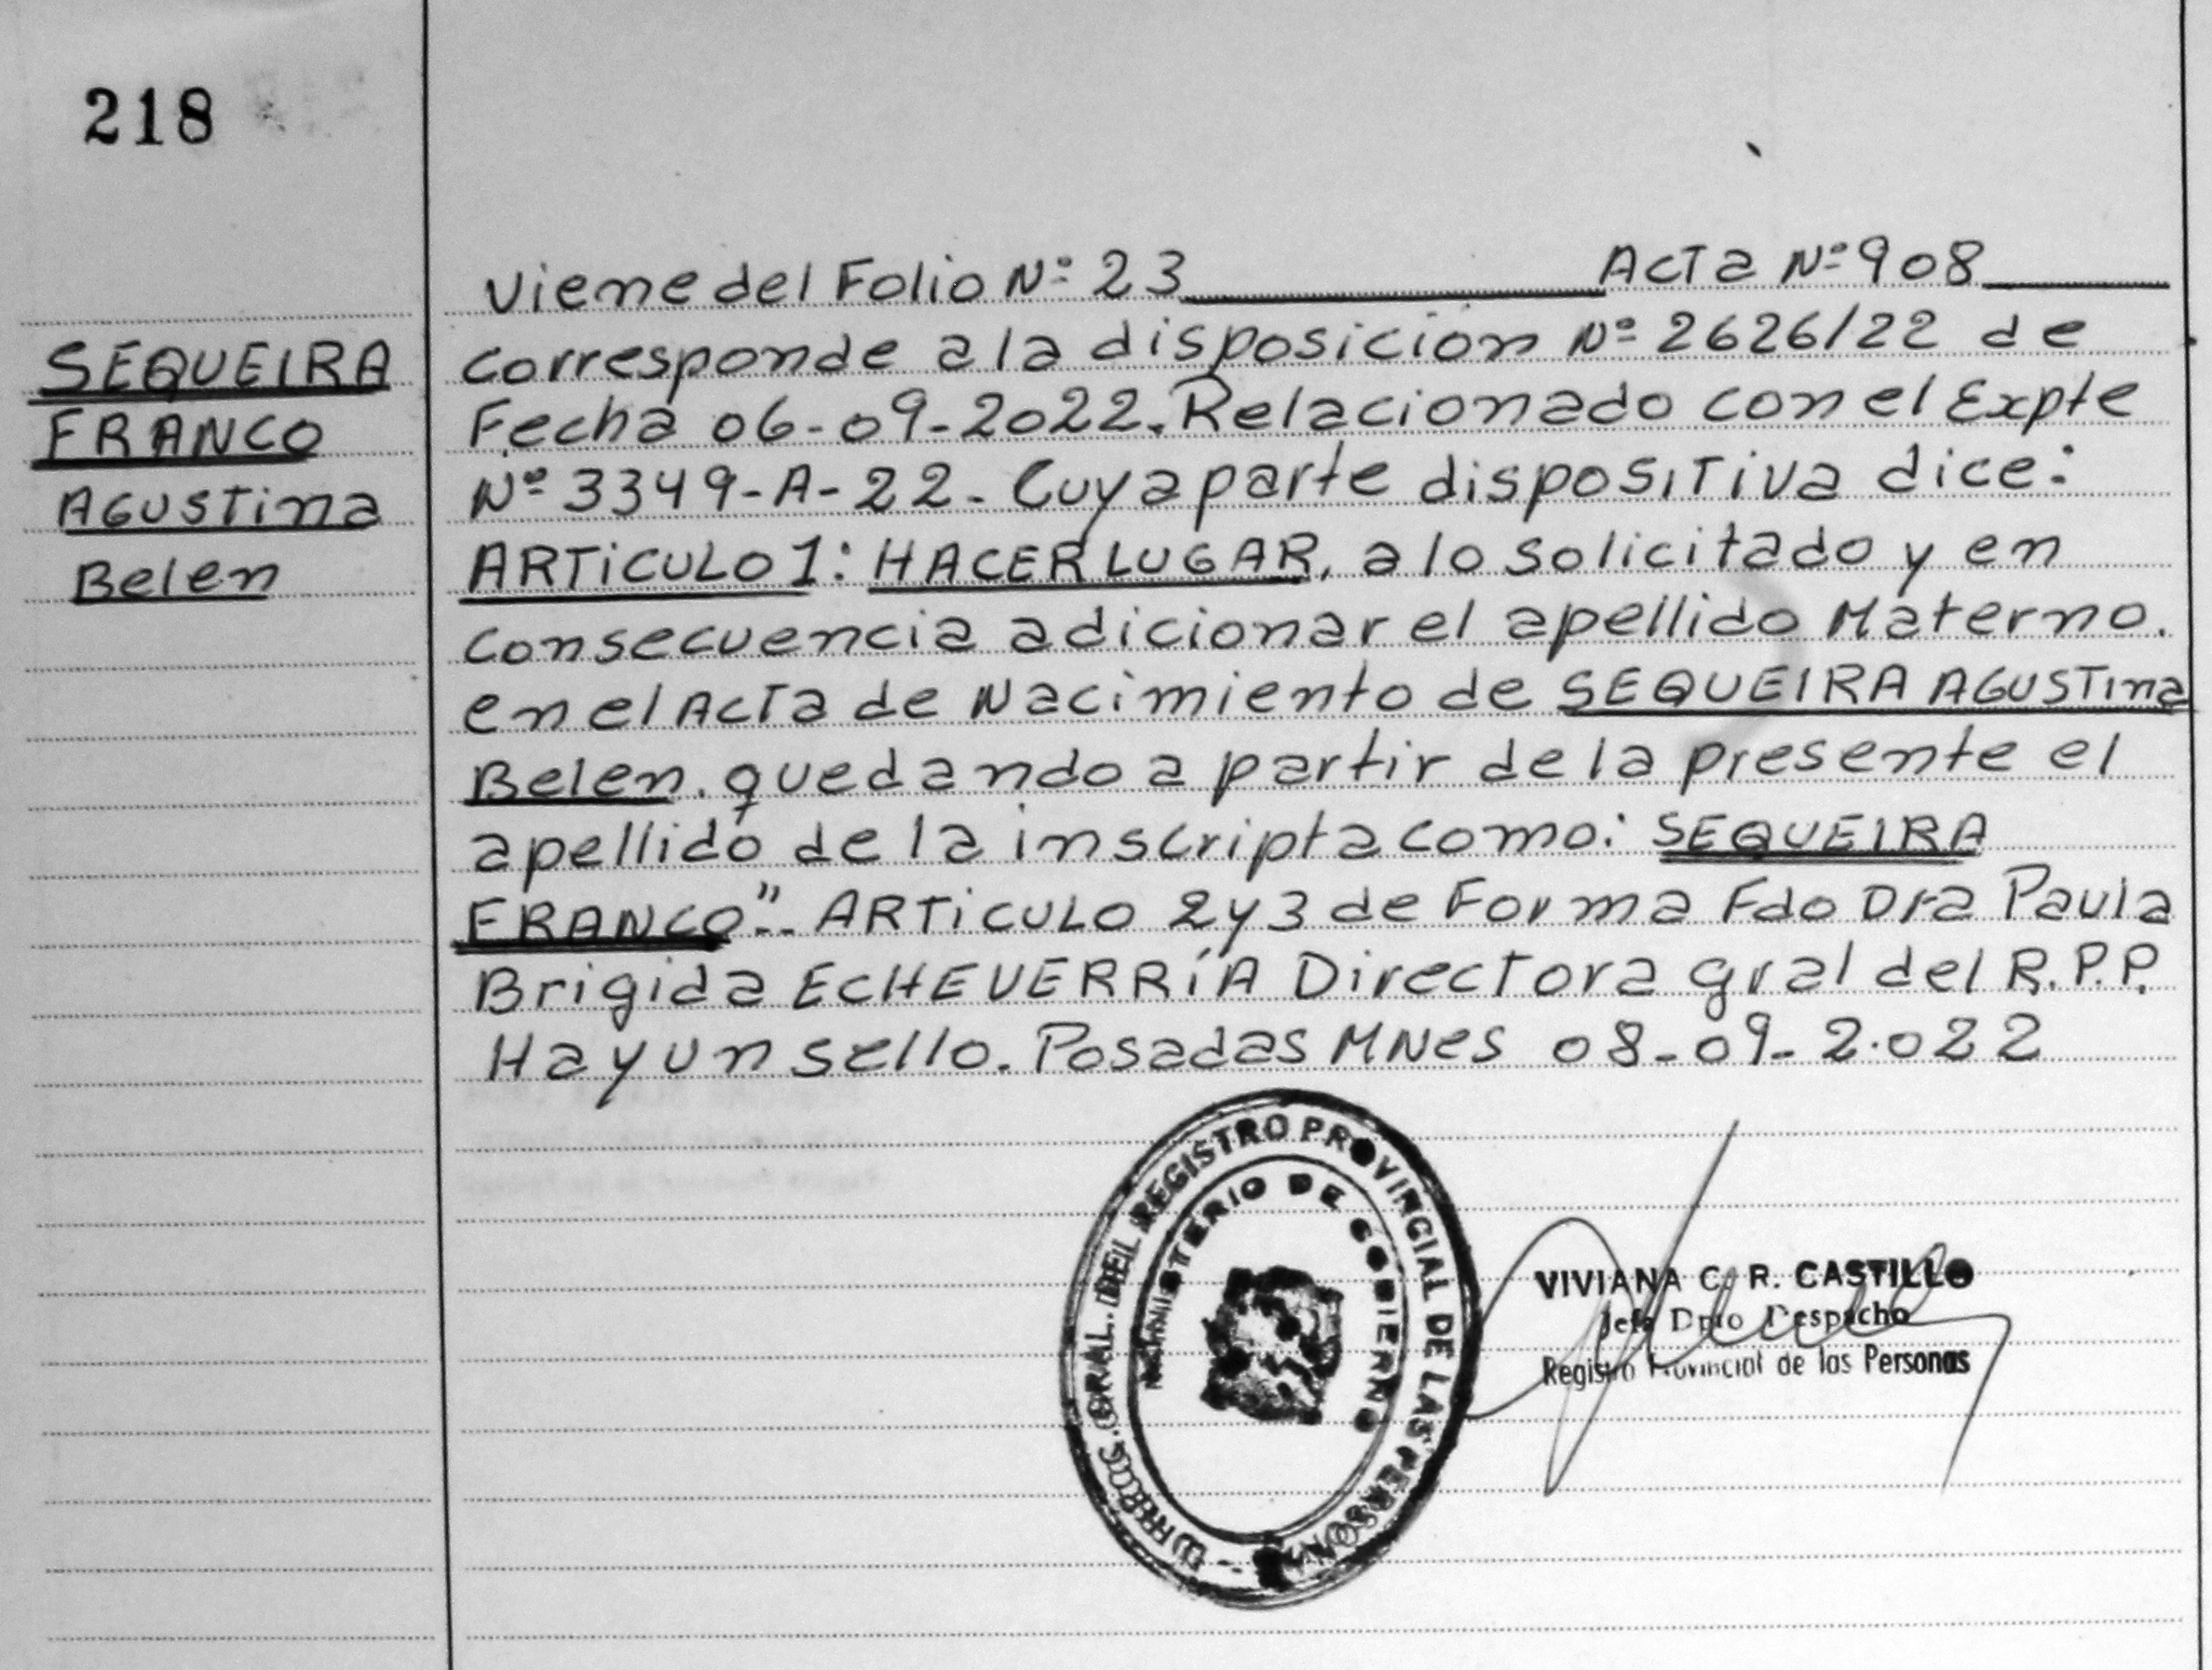 218
SEQUEIRA
FRANCO
AGUSTina
Belen
Viene del Folio Nº 23 Acta Nº 908
corresponde a la disposición Nº 2626/22 de
Fecha 06-09-2022. Relacionado con el Expte
Nº 3349-A-22- Cuya parte dispositiva dice:
ARTiCULO 1: HACER LUGAR, a lo solicitado y en
consecuencia adicionar el apellido Materno.
en el Acta de Nacimiento de SEQUEIRA AGUSTina
Belen. quedando a partir de la presente el
apellido de la inscripta como: SEQUEIRA
FRANCO".- ARTiCULO 2 y 3 de Forma Fdo Dra Paula
Brigida ECHEVERRíA Directora gral del R.P.P.
Hay un sello. Posadas MNes 08-09-2.022
DIRECC. GRAL. DEL REGISTRO PROVINCIAL DE LAS PERSONAS
MINISTERIO DE GOBIERNO
VIVIANA C. R. CASTILLO
Jefa Dpto Despacho
Registro Provincial de las Personas